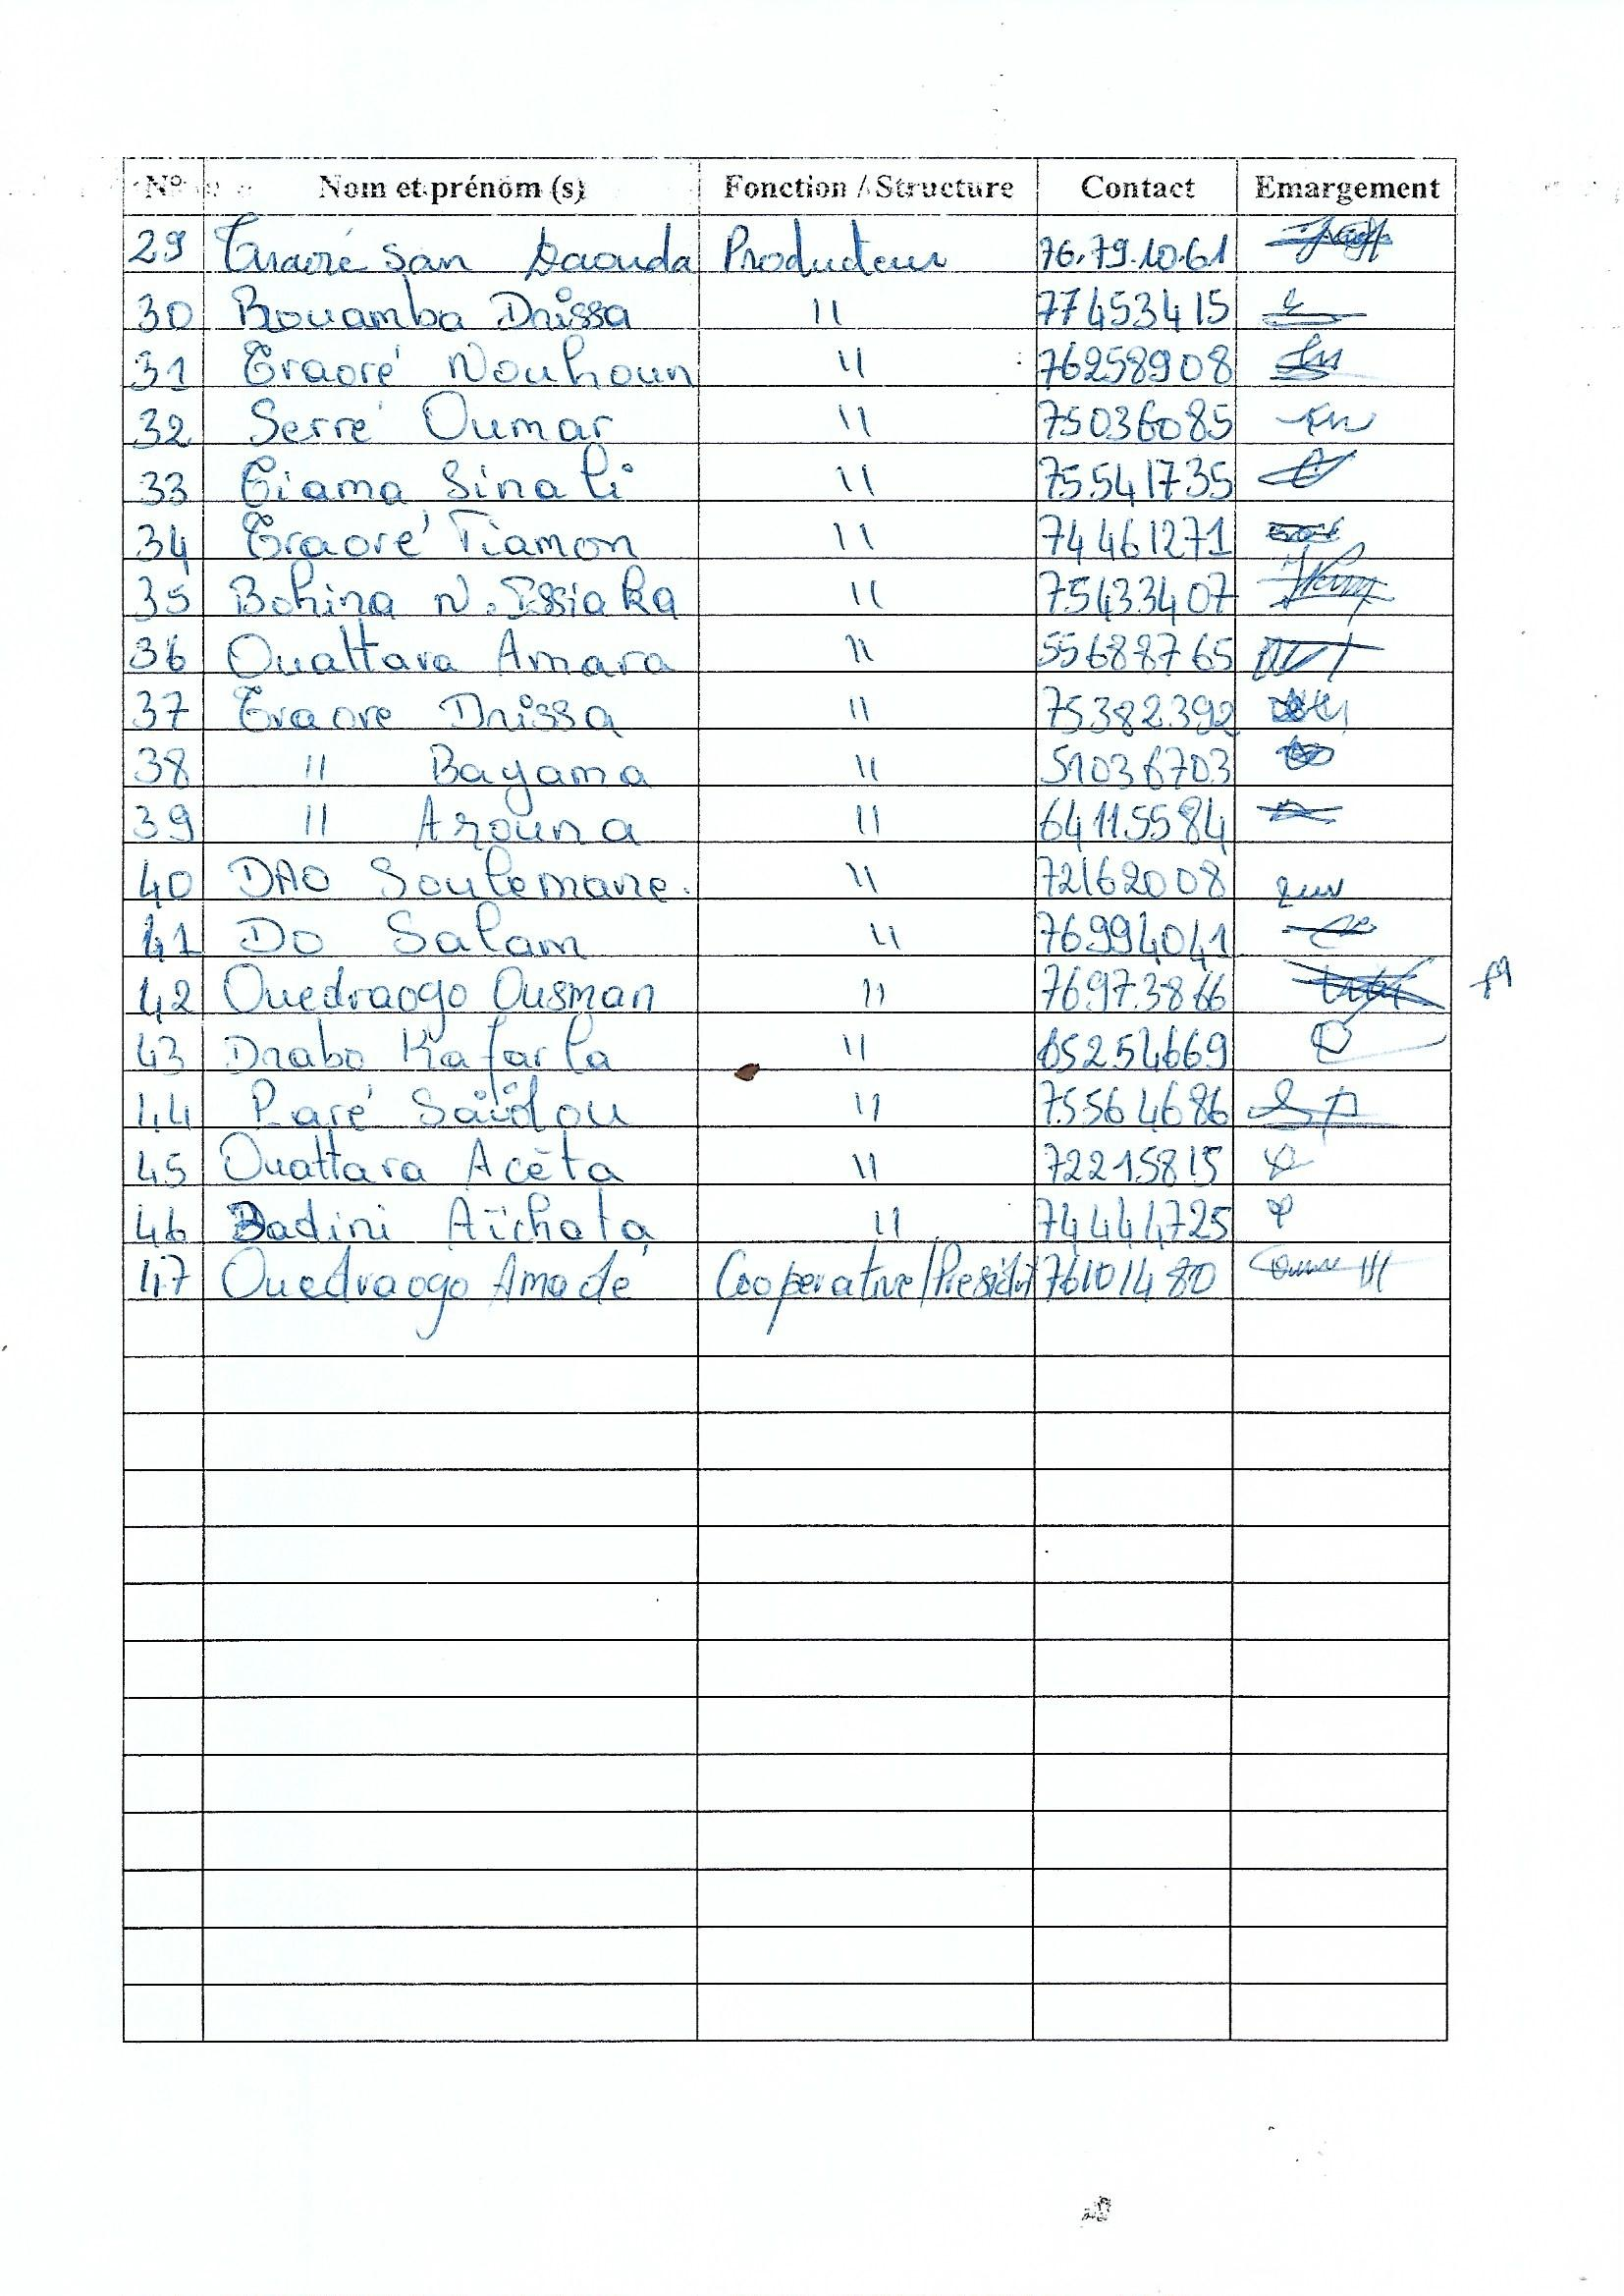 N° Nom et prénom (s) Fonction / Structure Contact Emargement
29 Traoré San Daouda Producteur 76.79.10.61
30 Rouamba Drissa " 77453415
31 Traoré Nouhoun " 76258908
32 Serré Oumar " 75036085
33 Tiama Sinali " 75541735
34 Traoré Tiamon " 74461271
35 Bohina N. Issiaka " 75433407
36 Ouattara Amara " 55688765
37 Traore Drissa " 75382392
38 " Bayama " 51036703
39 " Arouna " 64115584
40 DAO Soulemane. " 72162008
41 Do Salam " 76994041
42 Ouedraogo Ousman " 76973866
43 Drabo Kafarla " 65254669
44 Paré Saïdou " 75564686
45 Ouattara Acéta " 72215815
46 Badini Aïchata " 74444725
47 Ouedraogo Amadé Cooperative/Presidt 76101480